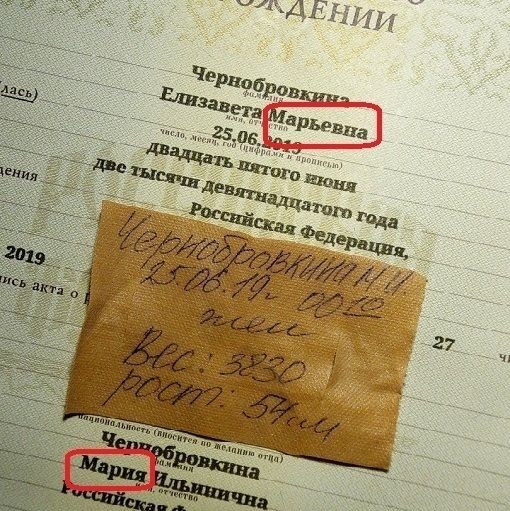 РОЖДЕНИИ
Чернобровкина
фамилия
лась)
Елизавета Марьевна
имя, отчество
25.06.2019
число, месяц, год (цифрами и прописью)
двадцать пятого июня
две тысячи девятнадцатого года
дения
Российская Федерация,
2019
Чернобровкина М.И.
25.06.19г 00 10
жен
27
Вес: 3830
рост: 54см
национальность (вносится по желанию отца)
Чернобровкина
фамилия
Мария Ильинична
отчество
российская